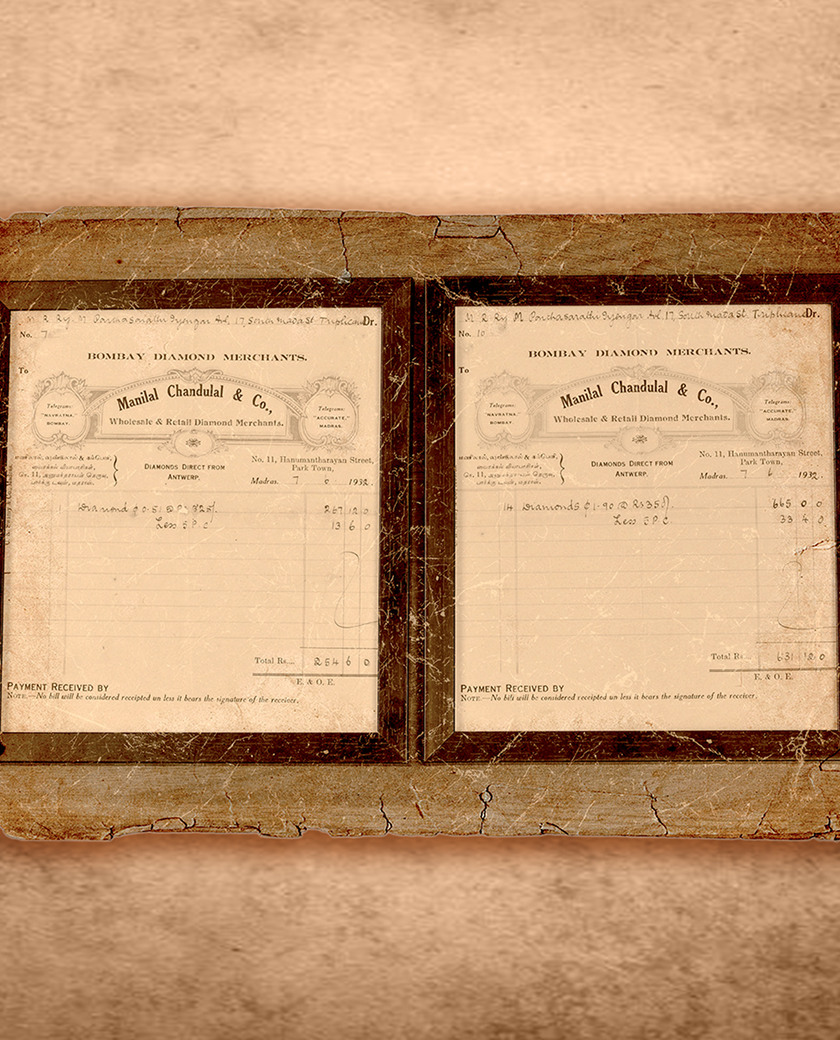 M. R. Ry. M. Parthasarathi Iyengar Avl. 17, South Mada St. Triplicane Dr.
No. 7
BOMBAY DIAMOND MERCHANTS.
To
Manilal Chandulal & Co.,
Wholesale & Retail Diamond Merchants.
Telegrams:
"NAVRATNA,"
BOMBAY.
Telegrams:
"ACCURATE,"
MADRAS.
DIAMONDS DIRECT FROM
ANTWERP.
No. 11, Hanumantharayan Street,
Park Town,
Madras. 7 6 1932.
1 Diamond 0-51 @ 525/. 267 12 0
Less 5 P.C. 13 6 0
Total Rs.... 254 6 0
E. & O. E.
PAYMENT RECEIVED BY
NOTE.—No bill will be considered receipted un less it bears the signature of the receiver.
M. R. Ry. M. Parthasarathi Iyengar Avl. 17, South Mada St. Triplicane Dr.
No. 10
BOMBAY DIAMOND MERCHANTS.
To
Manilal Chandulal & Co.,
Wholesale & Retail Diamond Merchants.
Telegrams:
"NAVRATNA,"
BOMBAY.
Telegrams:
"ACCURATE,"
MADRAS.
DIAMONDS DIRECT FROM
ANTWERP.
No. 11, Hanumantharayan Street,
Park Town,
Madras. 7 6 1932.
14 Diamonds 1-90 @ Rs 350/. 665 0 0
Less 5 P.C. 33 4 0
Total Rs.... 631 12 0
E. & O. E.
PAYMENT RECEIVED BY
NOTE.—No bill will be considered receipted un less it bears the signature of the receiver.